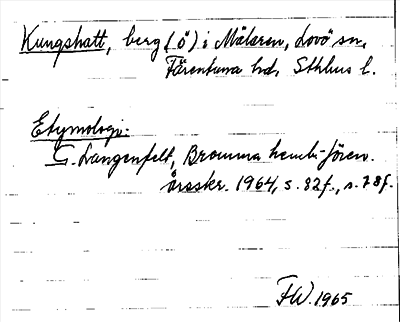 Kungshatt, berg (ö) i Mälaren, Lovö sn,
Färentuna hd, Sthlms l.
Etymologi:
G. Langenfelt, Bromma hemb.-fören.
årsskr. 1964, s. 82 f., s. 78 f.
FW. 1965